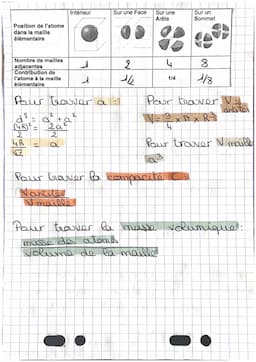 Intérieur Sur une Face Sur une Arête Sur un Sommet
Position de l'atome dans la maille élémentaire
Nombre de mailles adjacentes 1 2 4 8
Contribution de l'atome à la maille élémentaire 1 1/2 1/4 1/8
Pour trouver a :
Pour trouver V
d² = a² + a²
(4R)² = 2a²
2 2
4R = a
√2
π × R³
Pour trouver V maille
a³
Pour trouver la compacité C
V maille
Pour trouver la masse volumique :
masse des atomes
volume de la maille